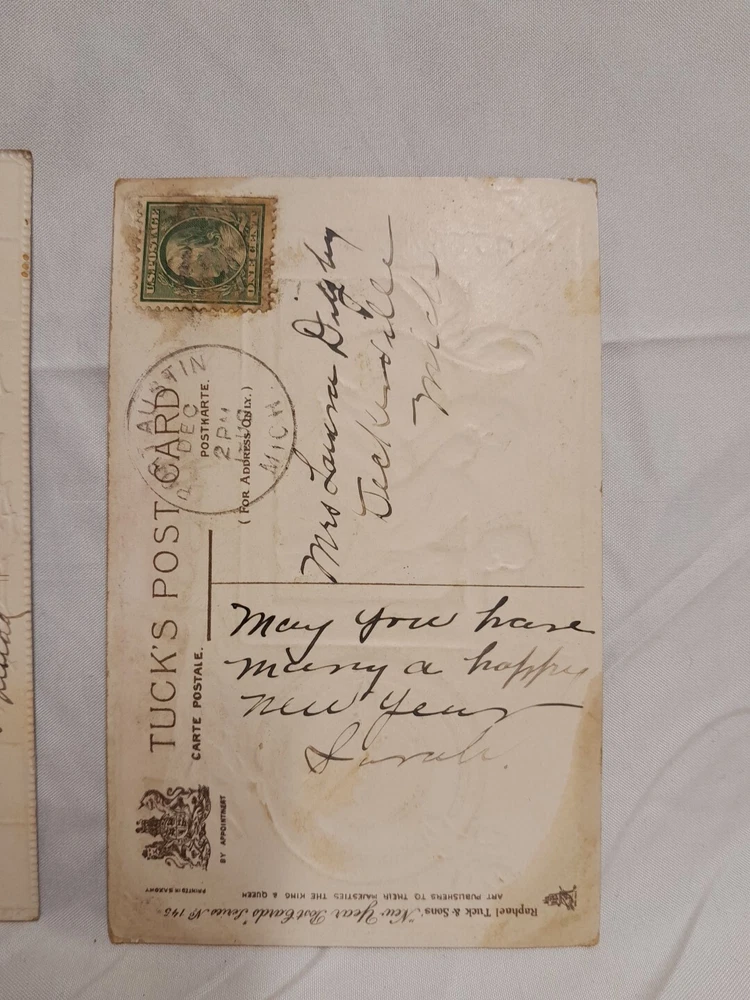 TUCK'S POST CARD
CARTE POSTALE.
POSTKARTE.
(FOR ADDRESS ONLY.)
BY APPOINTMENT
PRINTED IN SAXONY
U.S. POSTAGE
ONE CENT
DEC
2 PM
MICH.
Mrs Laura Digby
Deckerville
Mich
May you have
many a happy
New Year
Sarah.
Raphael Tuck & Sons' "New Year" Post Cards Series No 145
ART PUBLISHERS TO THEIR MAJESTIES THE KING & QUEEN